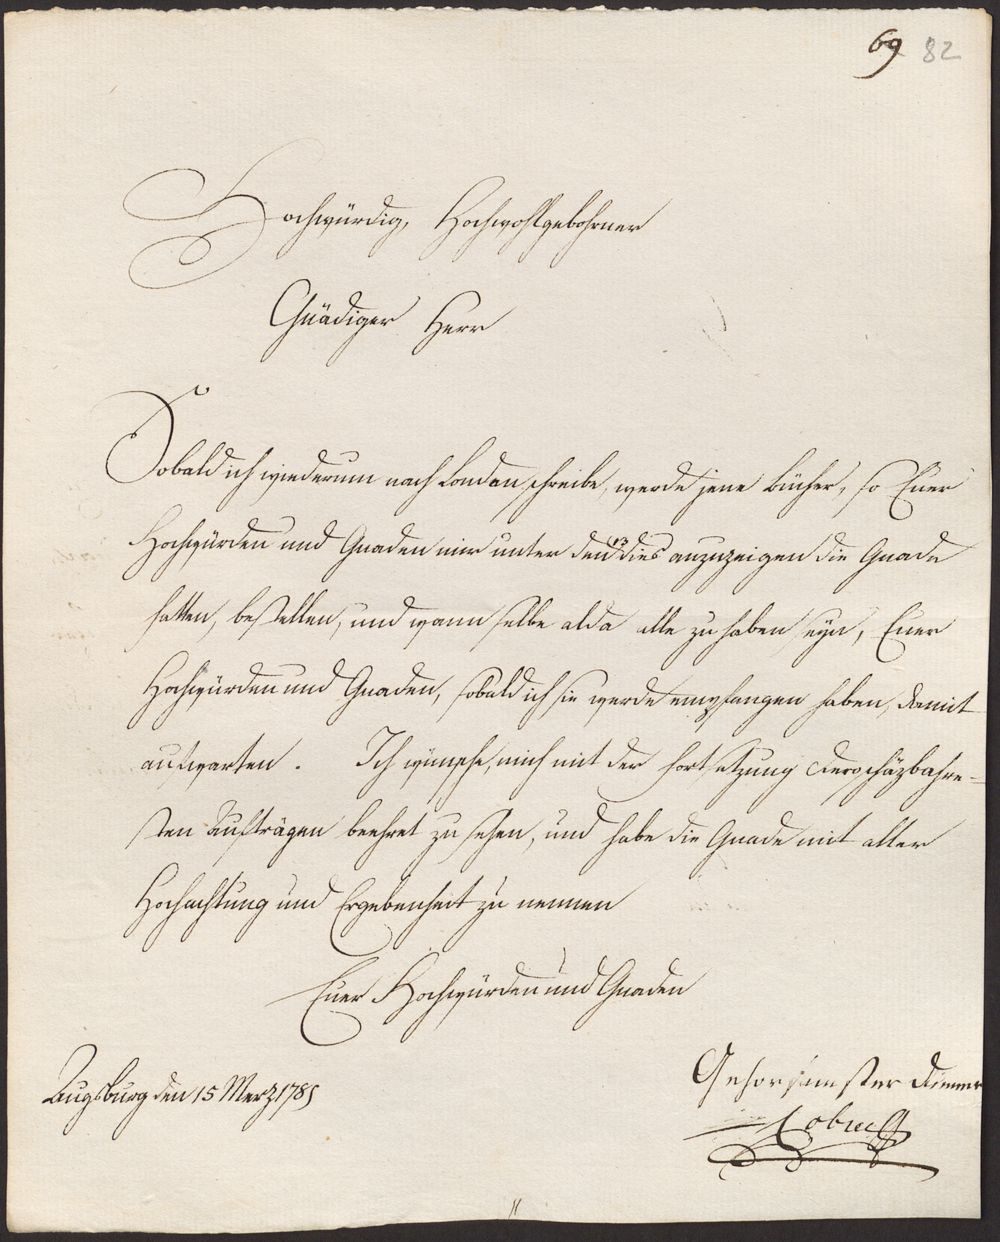 69 82
Hochwürdig, Hochwohlgebohrner
Gnädiger Herr
Sobald ich wiederum nach London schreibe, werde jene Bücher, so Euer
Hochwürden und Gnaden mir unter den 13 dies anzuzeigen die Gnade
hatten, bestellen, und wann selbe alda alle zu haben seyn, Euer
Hochwürden und Gnaden, sobald ich sie werde empfangen haben, damit
aufwarten. Ich wünsche, mich mit der Fortsetzung dero schäzbahre-
sten Aufträgen beehret zu sehen, und habe die Gnade mit aller
Hochachtung und Ergebenheit zu nennen
Euer Hochwürden und Gnaden
Augsburg den 15 Merz 1785
Gehorsamster Diener